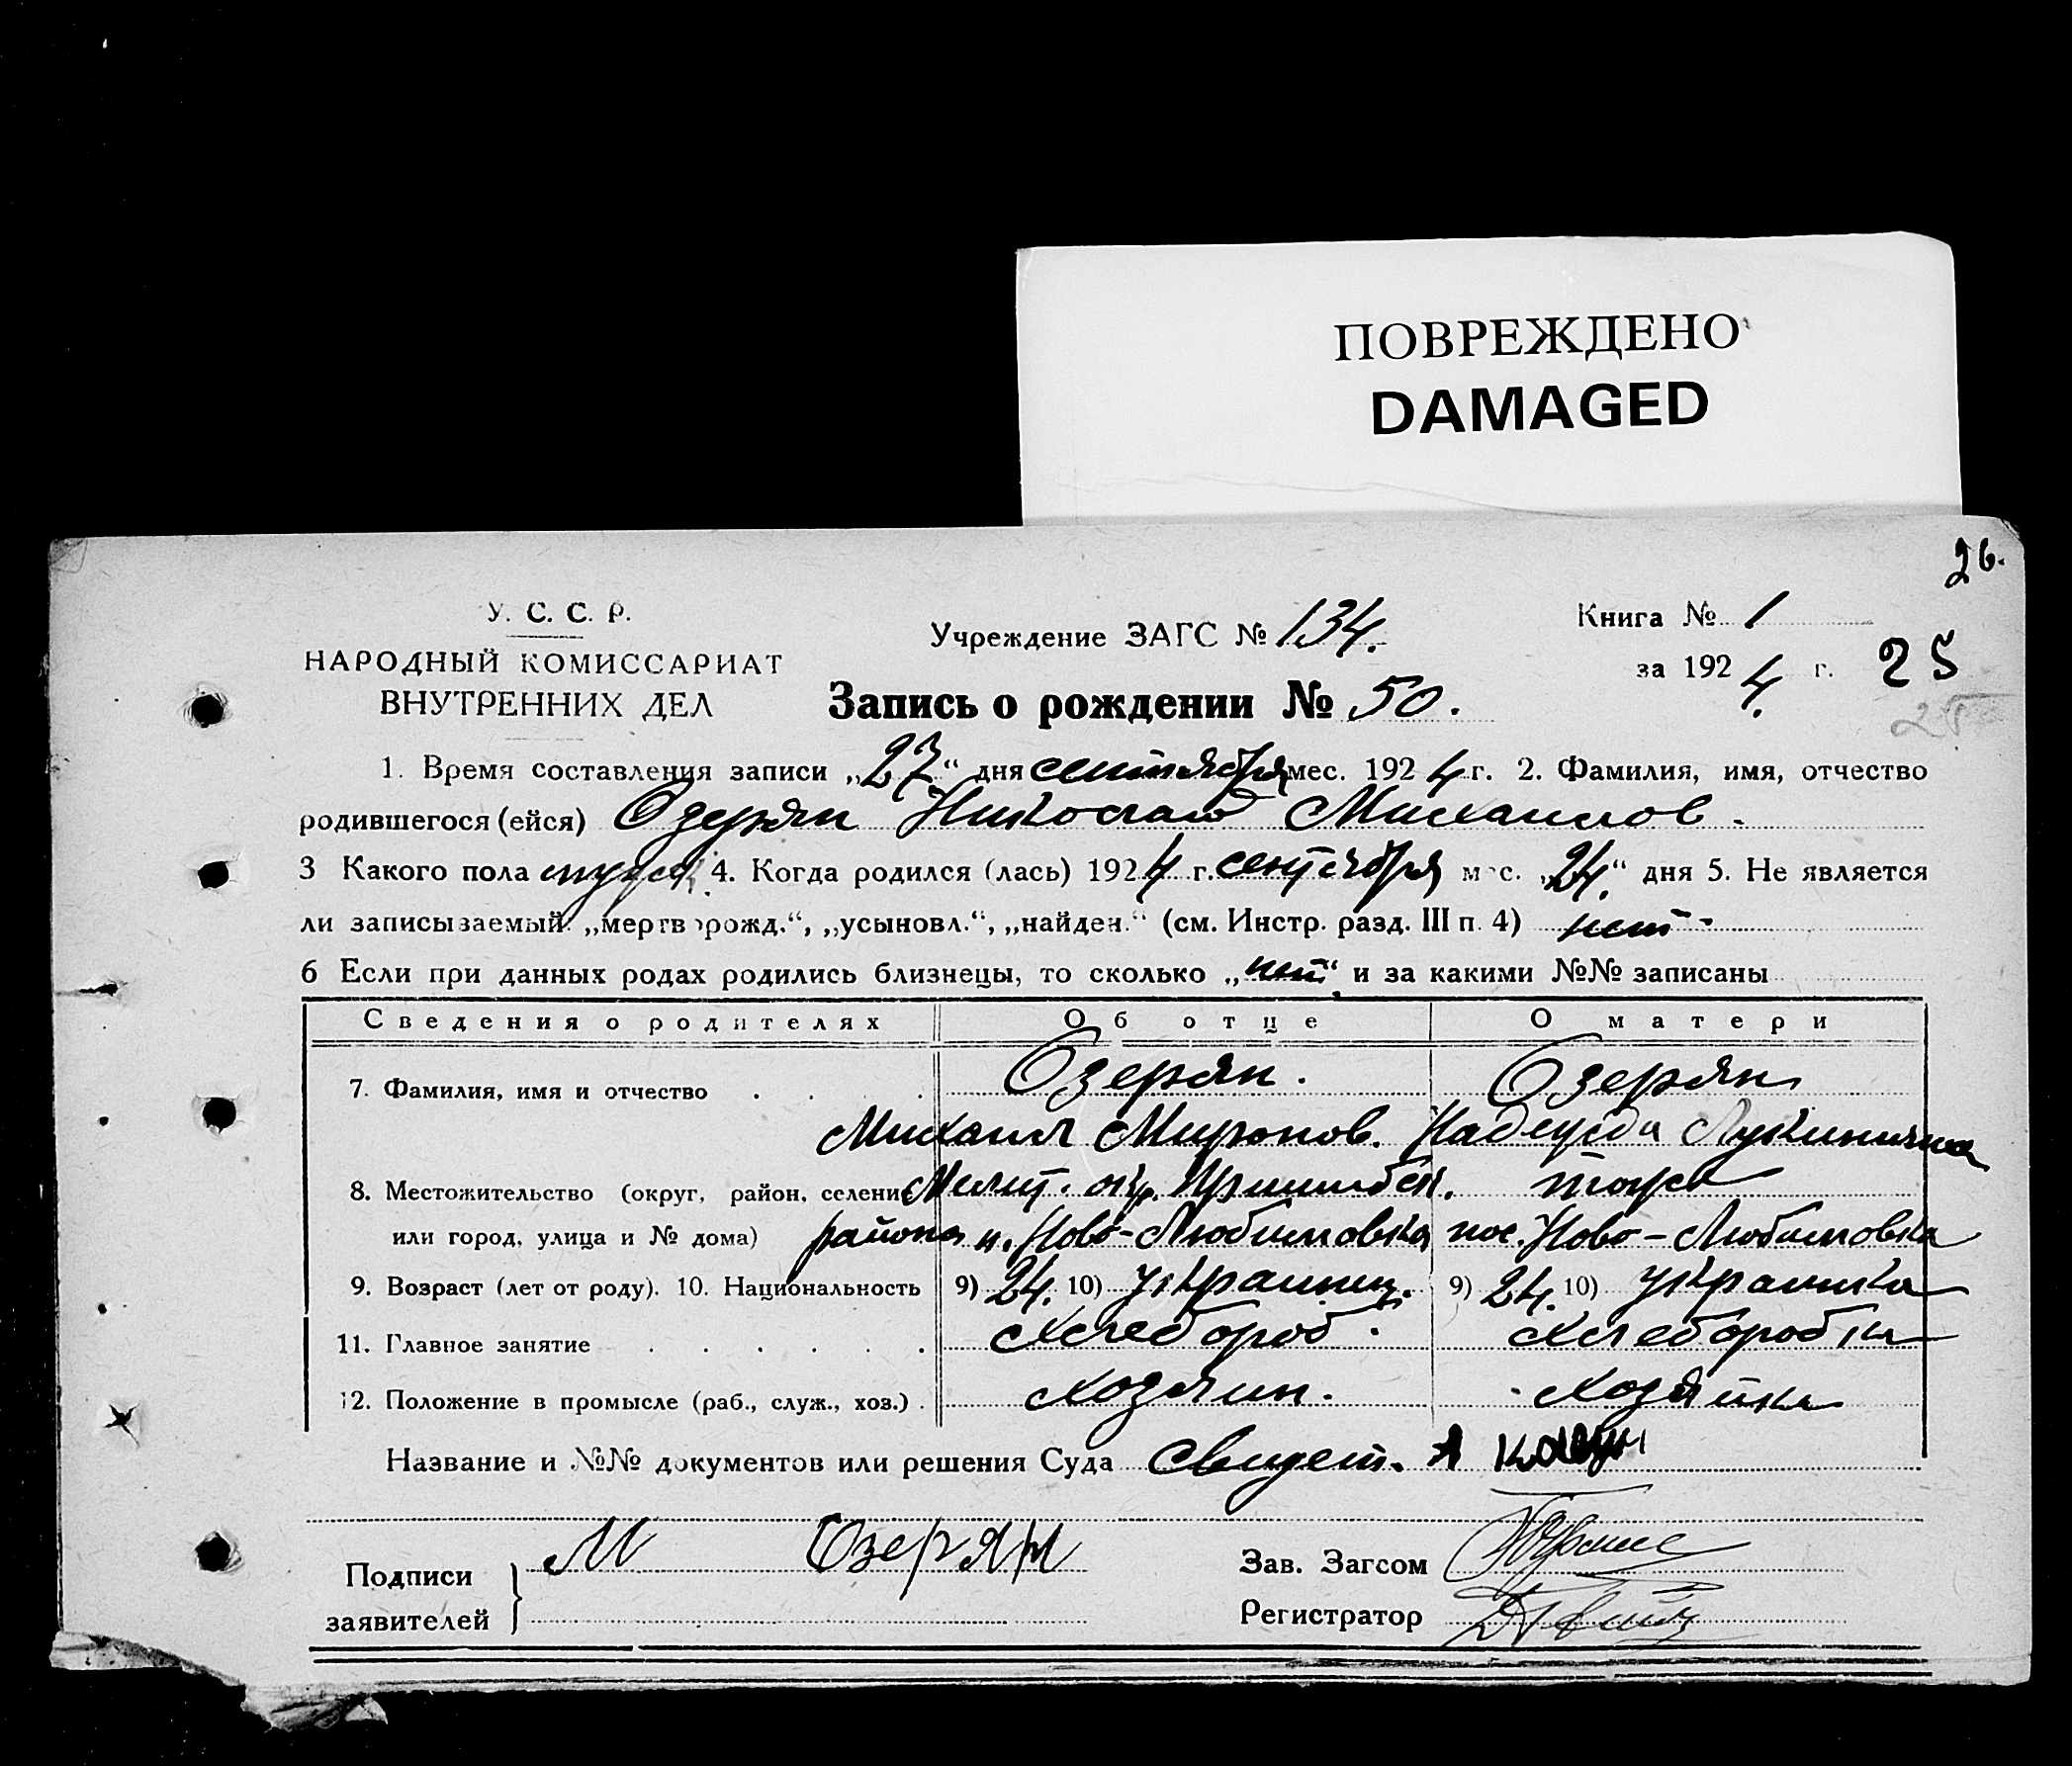 ПОВРЕЖДЕНО
DAMAGED
26.
У. С. С. Р.
НАРОДНЫЙ КОМИССАРИАТ
ВНУТРЕННИХ ДЕЛ
Учреждение ЗАГС № 134.
Книга № 1
за 1924 г. 25
25
Запись о рождении № 50.
1. Время составления записи „27“ дня сентября мес. 1924 г. 2. Фамилия, имя, отчество
родившегося (ейся) Озерян Николай Михаилов.
3 Какого пола мужск. 4. Когда родился (лась) 1924 г. сентября мес. „24.“ дня 5. Не является
ли записываемый „мертворожд.“, „усыновл.“, „найден.“ (см. Инстр. разд. III п. 4) нет
6 Если при данных родах родились близнецы, то сколько „нет“ и за какими №№ записаны
Сведения о родителях Об отце О матери
7. Фамилия, имя и отчество . . . . Озерян. Озерян
Михаил Миронов. Надежда Лукинична
8. Местожительство (округ, район, селение Мелит. окр. Пришибск. тоже
или город, улица и № дома) района п. Ново-Любимовка пос. Ново-Любимовка
9. Возраст (лет от роду). 10. Национальность 9) 24. 10) украинец. 9) 24. 10) украинка
11. Главное занятие . . . . . . Хлебороб. Хлеборобка
12. Положение в промысле (раб., служ., хоз.) . хозяин. хозяйка
Название и №№ документов или решения Суда Свидет.
Подписи
заявителей М Озерян
Зав. Загсом
Регистратор